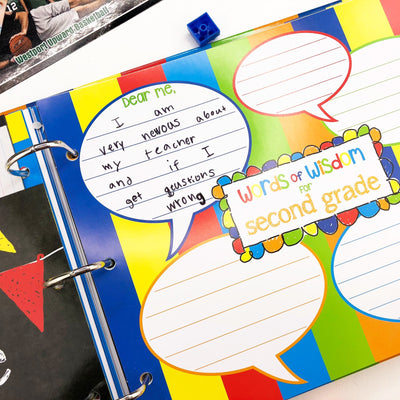 Westport Upward Basketball
Dear me,
I am
very nevous about
my teacher
and if I
get quskions
wrong
Words of Wisdom
for
second grade